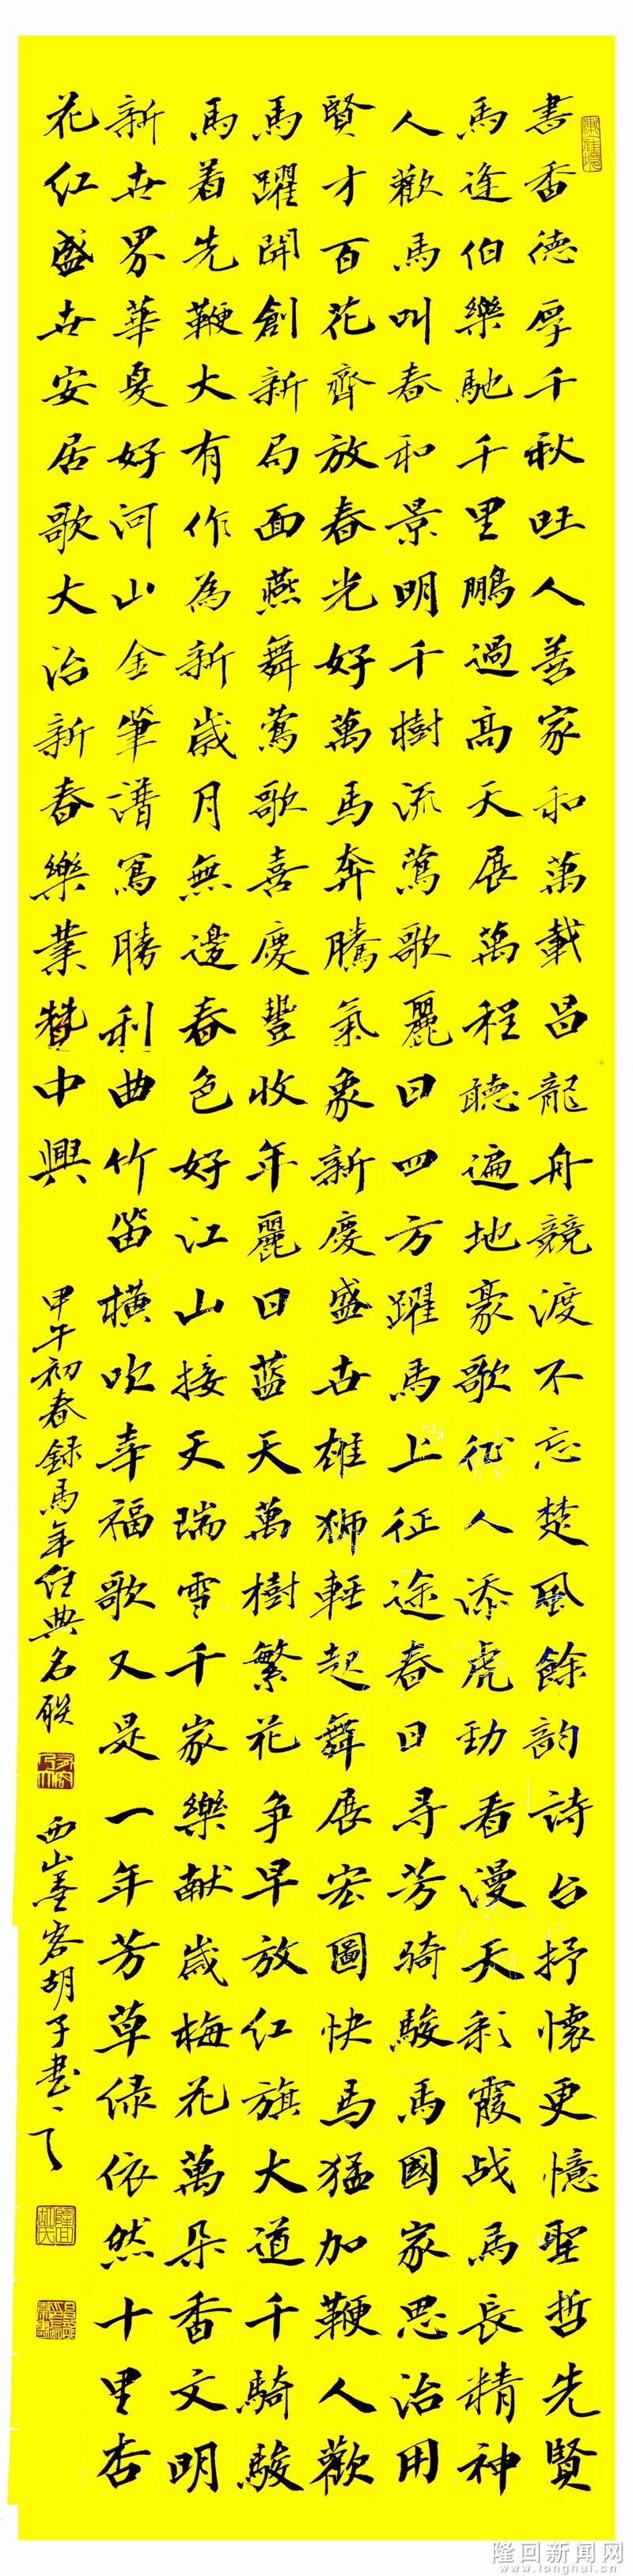 書香德厚千秋旺人善家和萬載昌龍舟競渡不忘楚風餘韵詩台抒懷更憶聖哲先賢
馬逢伯樂馳千里鵬過高天展萬程聽遍地豪歌征人添虎勁看漫天彩霞战馬長精神
人歡馬叫春和景明千樹流鶯歌麗日四方躍馬上征途春日尋芳騎駿馬國家思治用
賢才百花齊放春光好萬馬奔騰氣象新慶盛世雄狮軽起舞展宏圖快馬猛加鞭人歡
馬躍開創新局面燕舞鶯歌喜慶豐收年麗日蓝天萬樹繁花争早放红旗大道千騎駿
馬着先鞭大有作為新歲月無邊春色好江山接天瑞雪千家樂献歲梅花萬朵香文明
新世界華夏好河山金筆譜寫勝利曲竹笛横吹幸福歌又是一年芳草绿依然十里杏
花红盛世安居歌大治新春樂業贊中興
甲午初春録馬年经典名联
西山墨客胡子書
隆回新闻网
www.longhui.cn